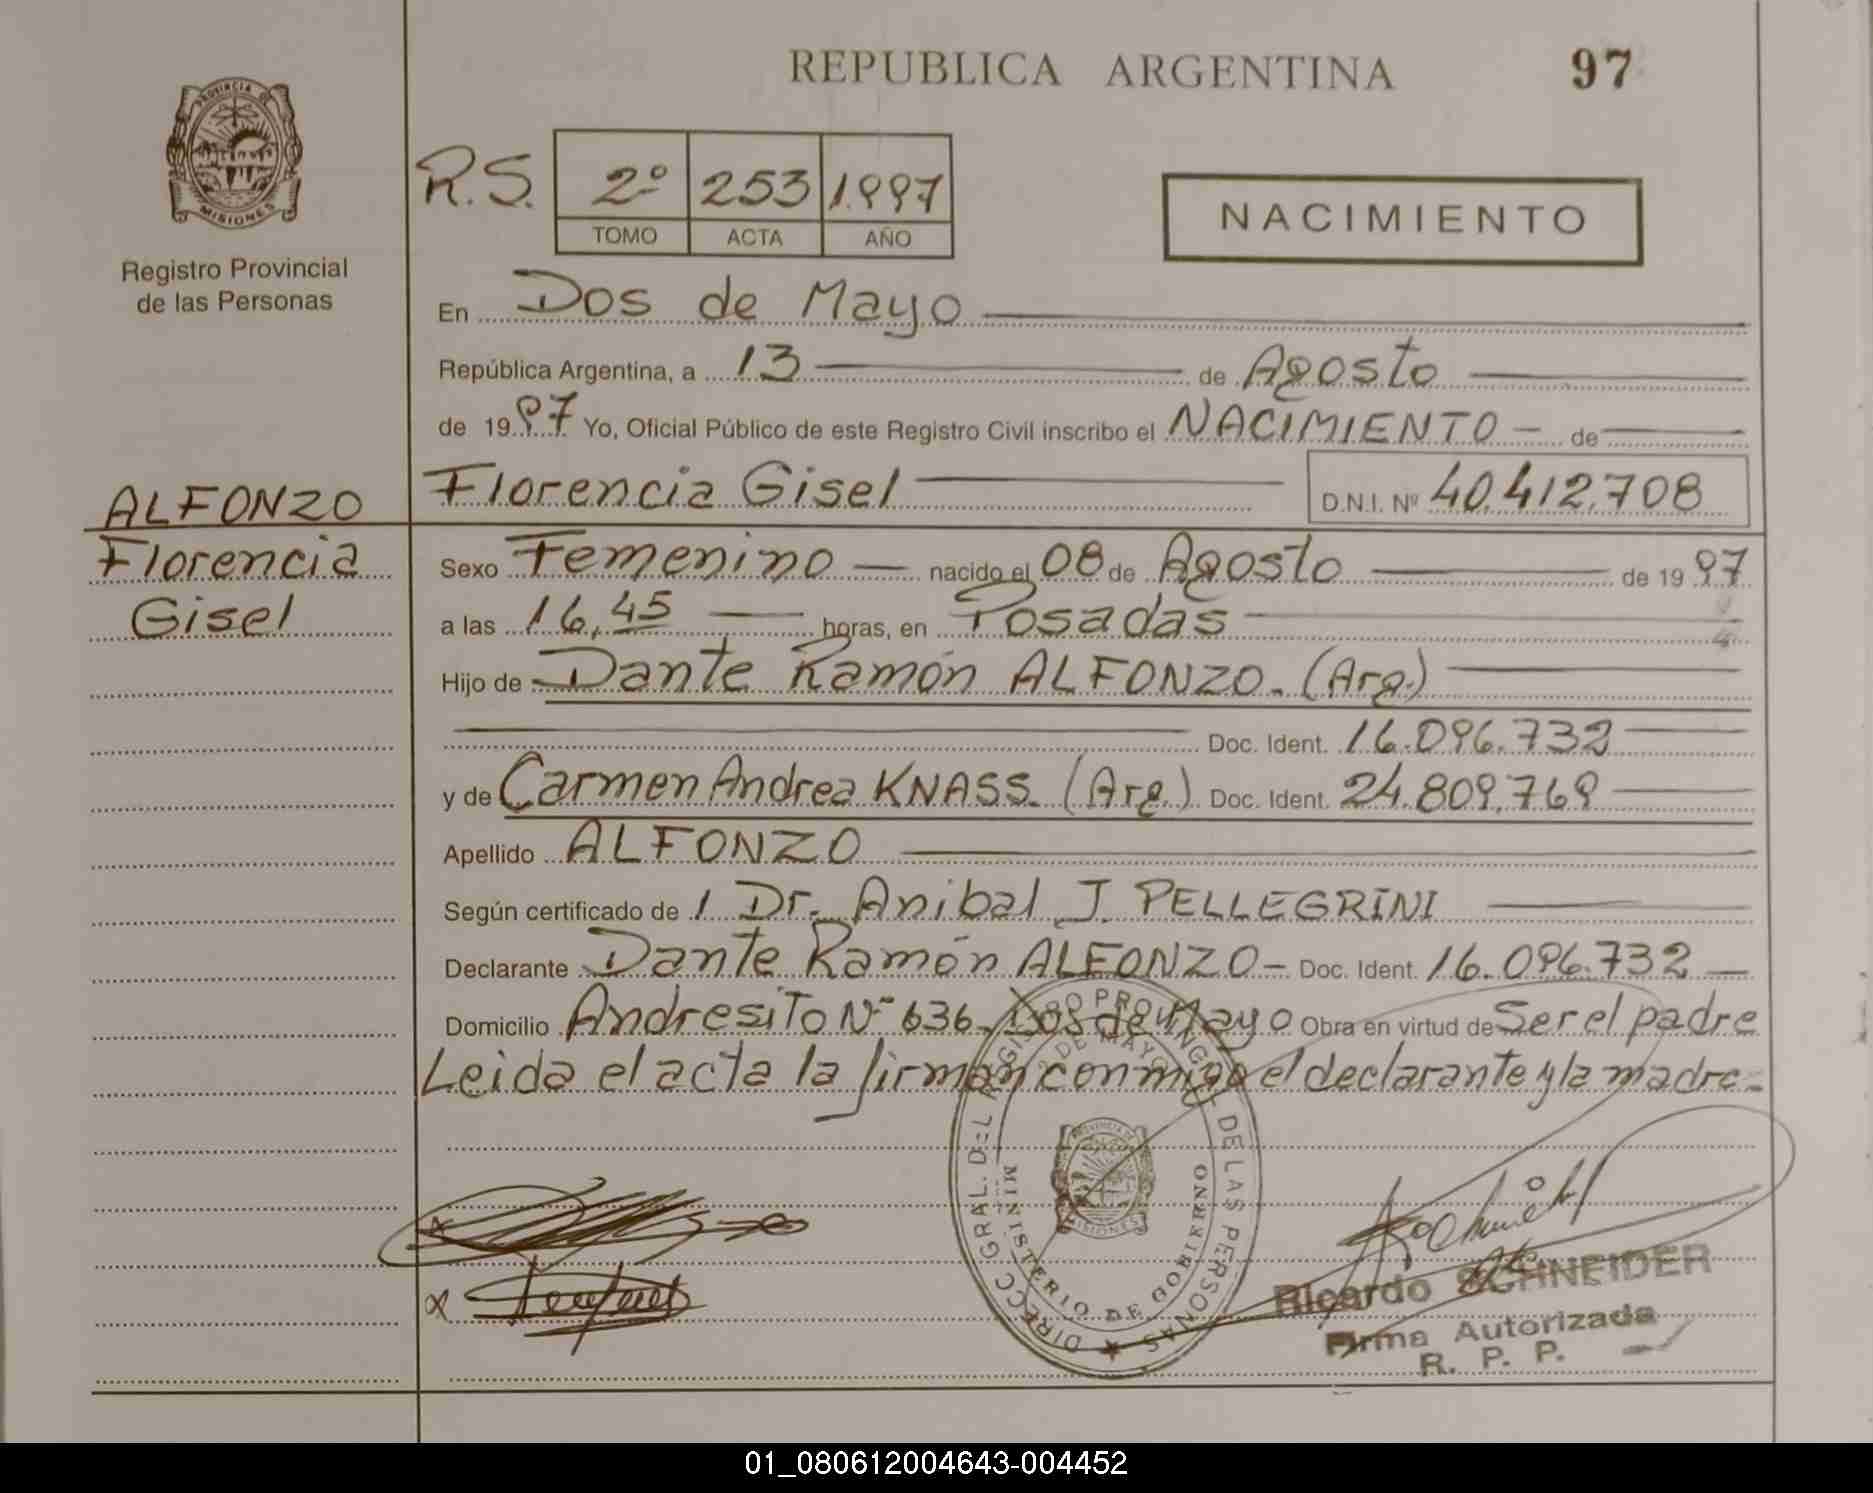 REPUBLICA ARGENTINA
97
PROVINCIA DE
MISIONES
Registro Provincial
de las Personas
R.S. 2º 253 1.997
TOMO ACTA AÑO
NACIMIENTO
En Dos de Mayo
República Argentina, a 13 de Agosto
de 1997 Yo, Oficial Público de este Registro Civil inscribo el NACIMIENTO - de
Florencia Gisel D.N.I. Nº 40.412.708
ALFONZO
Florencia
Gisel
Sexo Femenino nacido el 08 de Agosto de 1997
a las 16,45 horas, en Posadas
Hijo de Dante Ramón ALFONZO. (Arg.)
Doc. Ident. 16.096.732
y de Carmen Andrea KNASS. (Arg.) Doc. Ident. 24.809.769
Apellido ALFONZO
Según certificado de / Dr. Anibal J. PELLEGRINI
Declarante Dante Ramón ALFONZO - Doc. Ident. 16.096.732
Domicilio Andresito Nº 636. Dos de Mayo Obra en virtud de Ser el padre
Leida el acta la firman conmigo el declarante y la madre.
DIRECC GRAL. DEL REGISTRO PROVINCIAL DE LAS PERSONAS
DOS DE MAYO
MINISTERIO DE GOBIERNO
MISIONES
Ricardo SCHNEIDER
Firma Autorizada
R. P. P.
01_080612004643-004452